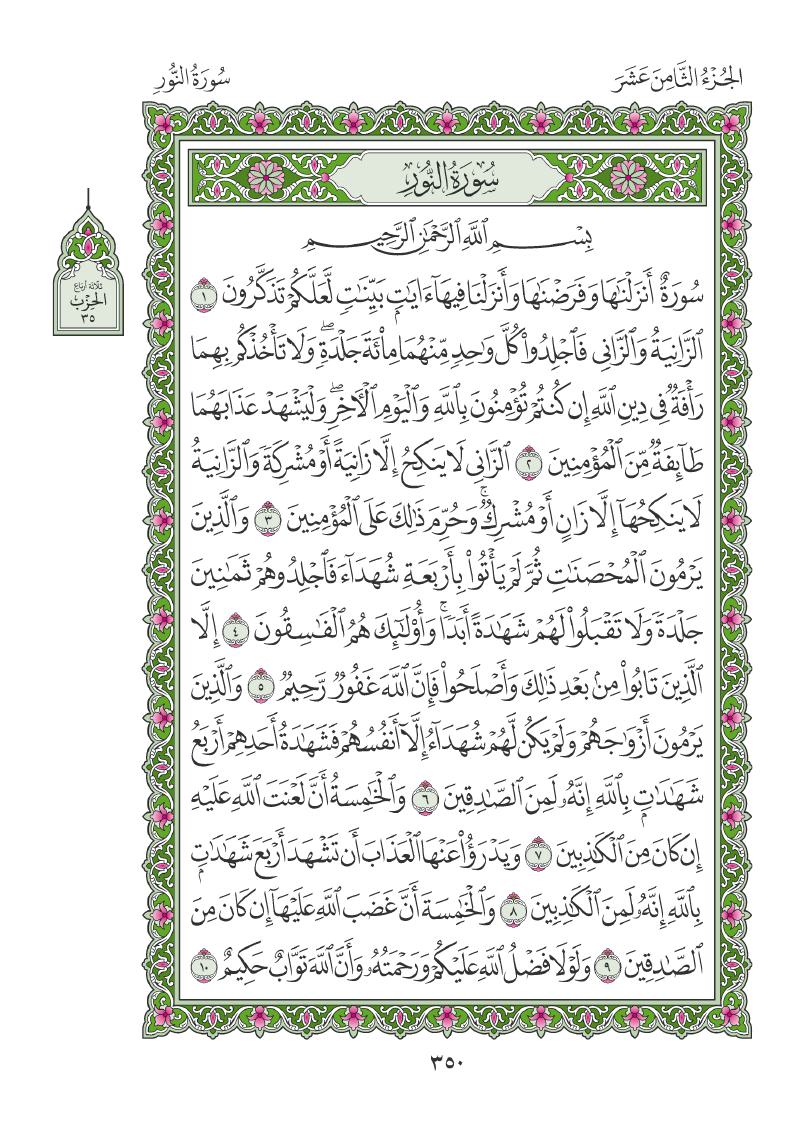 الجُزْءُ الثَّامِنَ عَشَرَ
سُورَةُ النُّورِ
سُورَةُ النُّورِ
ثلاثة أرباع
الحِزْب
٣٥
بِسْمِ ٱللَّهِ ٱلرَّحْمَٰنِ ٱلرَّحِيمِ
سُورَةٌ أَنزَلْنَٰهَا وَفَرَضْنَٰهَا وَأَنزَلْنَا فِيهَآ ءَايَٰتٍۭ بَيِّنَٰتٍ لَّعَلَّكُمْ تَذَكَّرُونَ ١
ٱلزَّانِيَةُ وَٱلزَّانِى فَٱجْلِدُوا۟ كُلَّ وَٰحِدٍ مِّنْهُمَا مِا۟ئَةَ جَلْدَةٍ ۖ وَلَا تَأْخُذْكُم بِهِمَا
رَأْفَةٌ فِى دِينِ ٱللَّهِ إِن كُنتُمْ تُؤْمِنُونَ بِٱللَّهِ وَٱلْيَوْمِ ٱلْءَاخِرِ ۖ وَلْيَشْهَدْ عَذَابَهُمَا
طَآئِفَةٌ مِّنَ ٱلْمُؤْمِنِينَ ٢ ٱلزَّانِى لَا يَنكِحُ إِلَّا زَانِيَةً أَوْ مُشْرِكَةً وَٱلزَّانِيَةُ
لَا يَنكِحُهَآ إِلَّا زَانٍ أَوْ مُشْرِكٌ ۚ وَحُرِّمَ ذَٰلِكَ عَلَى ٱلْمُؤْمِنِينَ ٣ وَٱلَّذِينَ
يَرْمُونَ ٱلْمُحْصَنَٰتِ ثُمَّ لَمْ يَأْتُوا۟ بِأَرْبَعَةِ شُهَدَآءَ فَٱجْلِدُوهُمْ ثَمَٰنِينَ
جَلْدَةً وَلَا تَقْبَلُوا۟ لَهُمْ شَهَٰدَةً أَبَدًا ۚ وَأُو۟لَٰٓئِكَ هُمُ ٱلْفَٰسِقُونَ ٤ إِلَّا
ٱلَّذِينَ تَابُوا۟ مِنۢ بَعْدِ ذَٰلِكَ وَأَصْلَحُوا۟ فَإِنَّ ٱللَّهَ غَفُورٌ رَّحِيمٌ ٥ وَٱلَّذِينَ
يَرْمُونَ أَزْوَٰجَهُمْ وَلَمْ يَكُن لَّهُمْ شُهَدَآءُ إِلَّآ أَنفُسُهُمْ فَشَهَٰدَةُ أَحَدِهِمْ أَرْبَعُ
شَهَٰدَٰتٍۭ بِٱللَّهِ إِنَّهُۥ لَمِنَ ٱلصَّٰدِقِينَ ٦ وَٱلْخَٰمِسَةُ أَنَّ لَعْنَتَ ٱللَّهِ عَلَيْهِ
إِن كَانَ مِنَ ٱلْكَٰذِبِينَ ٧ وَيَدْرَؤُا۟ عَنْهَا ٱلْعَذَابَ أَن تَشْهَدَ أَرْبَعَ شَهَٰدَٰتٍۭ
بِٱللَّهِ إِنَّهُۥ لَمِنَ ٱلْكَٰذِبِينَ ٨ وَٱلْخَٰمِسَةَ أَنَّ غَضَبَ ٱللَّهِ عَلَيْهَآ إِن كَانَ مِنَ
ٱلصَّٰدِقِينَ ٩ وَلَوْلَا فَضْلُ ٱللَّهِ عَلَيْكُمْ وَرَحْمَتُهُۥ وَأَنَّ ٱللَّهَ تَوَّابٌ حَكِيمٌ ١٠
٣٥٠